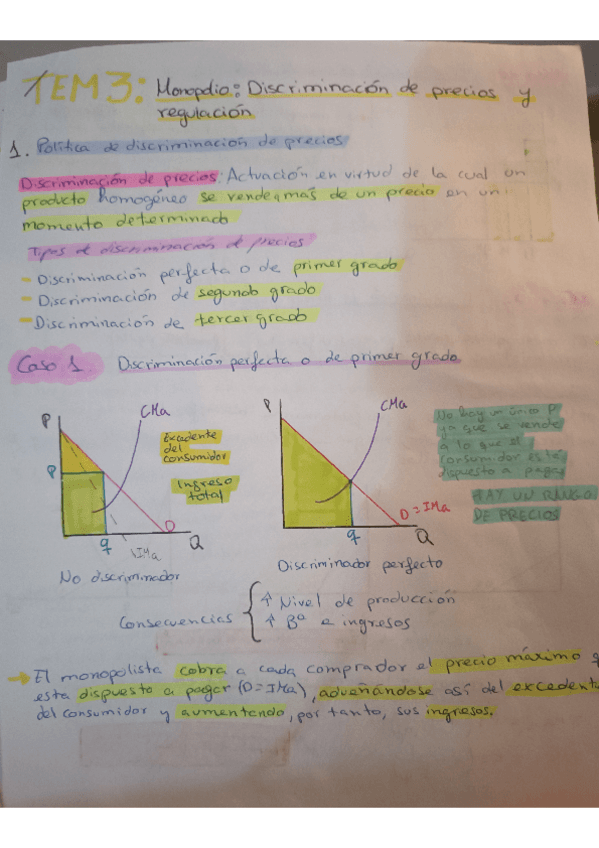 TEM 3: Monopolio: Discriminación de precios y
regulación
1. Política de discriminación de precios
Discriminación de precios: Actuación en virtud de la cual un
producto homogéneo se vende a más de un precio en un
momento determinado
Tipos de discriminación de precios
- Discriminación perfecta o de primer grado
- Discriminación de segundo grado
- Discriminación de tercer grado
Caso 1. Discriminación perfecta o de primer grado.
P
CMa
Excedente
del
consumidor
Ingreso
total
P
D
q
IMa
Q
No discriminador
P
CMa
D = IMa
q
Q
Discriminador perfecto
No hay un único P
ya que se vende
a lo que el
consumidor esté
dispuesto a pagar
HAY UN RANGO
DE PRECIOS
Consecuencias
↑ Nivel de producción
↑ Bº e ingresos
→ El monopolista cobra a cada comprador el precio máximo q
esta dispuesto a pagar (D = IMa), adueñándose así del excedent
del consumidor y aumentendo, por tanto, sus ingresos.